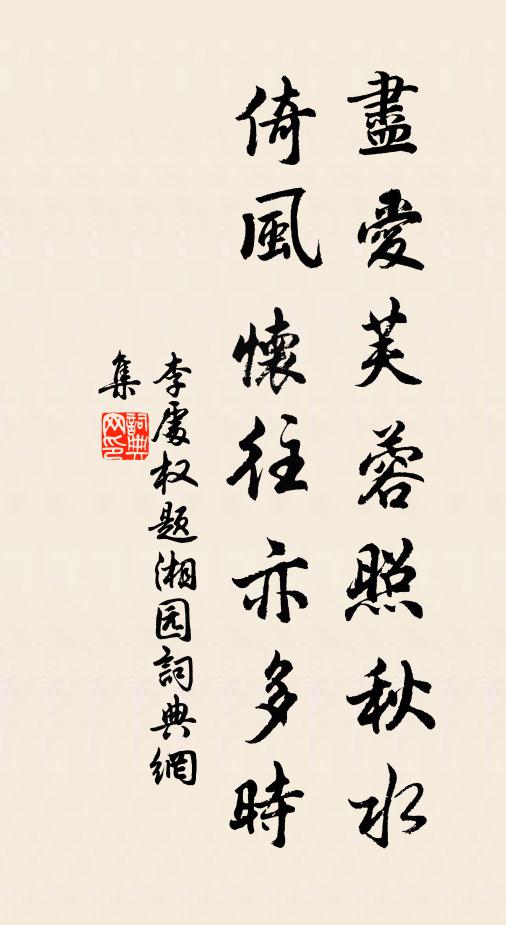 盡愛芙蓉照秋水
倚風懷往亦多時
李處权题湘园詞典網
集
詞典網印